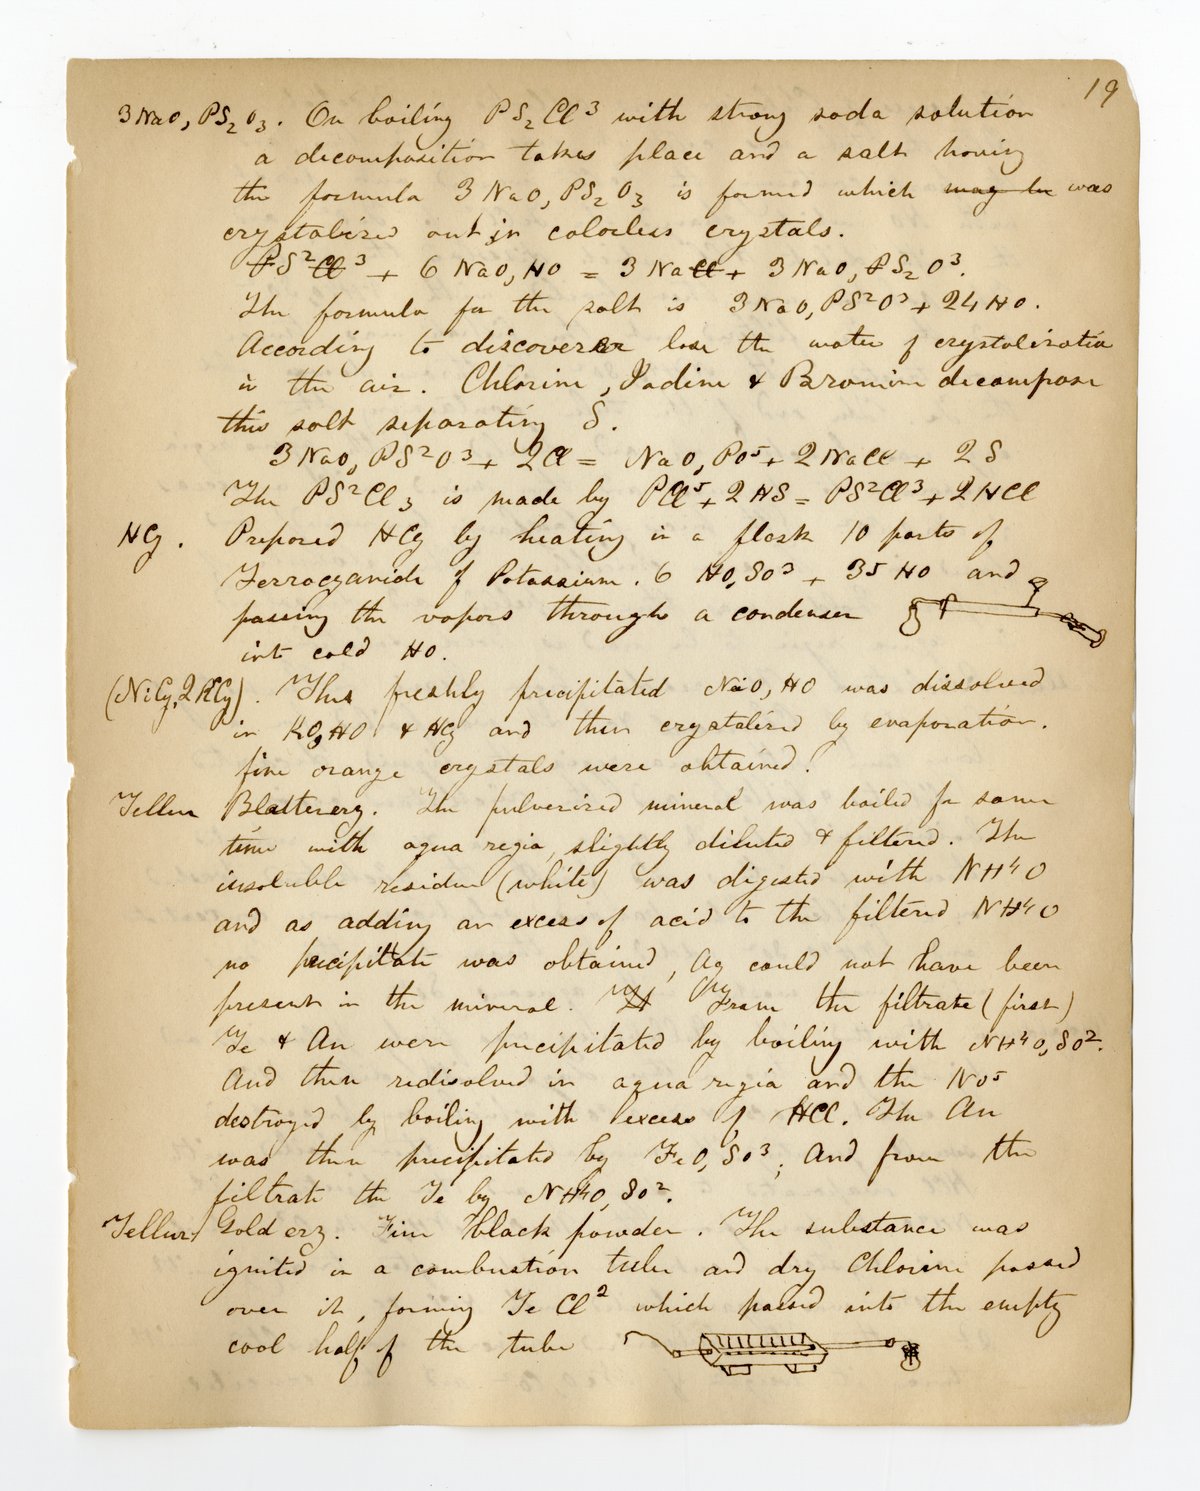 19
3NaO, PS₂O₃. On boiling PS₂Cl³ with strong soda solution
a decomposition takes place and a salt having
the formula 3NaO, PS₂O₃ is formed which may be was
crystalized out in colorless crystals.
PS²Cl³ + 6 NaO, HO = 3 NaCl + 3 NaO, PS₂O³.
The formula for the salt is 3NaO, PS²O³ + 24 HO.
According to discoverer lose the water of crystalization
in the air. Chlorine, Iodine & Bromine decompose
this salt separating S.
3NaO, PS²O³ + 2Cl = NaO, PO⁵ + 2NaCl + 2S
The PS²Cl₃ is made by PCl⁵ + 2HS = PS²Cl³ + 2HCl
HCy. Prepared HCy by heating in a flask 10 parts of
Ferrocyanide of Potassium. 6 HO, SO³ + 35 HO and
passing the vapors through a condenser
into cold HO.
(NiCy, 2KCy). This freshly precipitated NiO, HO was dissolved
in KO, HO & HCy and then crystalized by evaporation.
fine orange crystals were obtained.
Tellur Blattererz. The pulverized mineral was boiled for some
time with aqua regia, slightly diluted & filtered. The
insoluble residue (white) was digested with NH⁴O
and as adding an excess of acid to the filtered NH⁴O
no precipitate was obtained, Ag could not have been
present in the mineral. From the filtrate (first)
Te & Au were precipitated by boiling with NH⁴O, SO².
And then redisolved in aqua regia and the NO⁵
destroyed by boiling with excess of HCl. The Au
was then precipitated by FeO, SO³; And from the
filtrate the Te by NH⁴O, SO².
Tellur Gold erz. Fine black powder. The substance was
ignited in a combustion tube and dry Chlorine passed
over it, forming TeCl² which passed into the empty
cool half of the tube